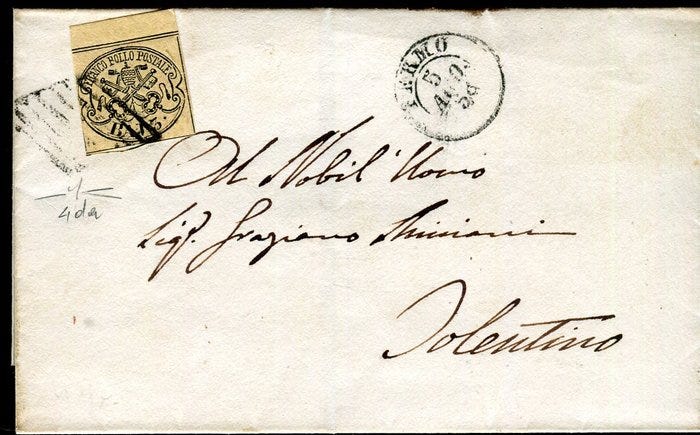 FRANCO BOLLO POSTALE
FERMO
5
AGO
59
Al Nobil' Uomo
Sigr. Graziano
Tolentino